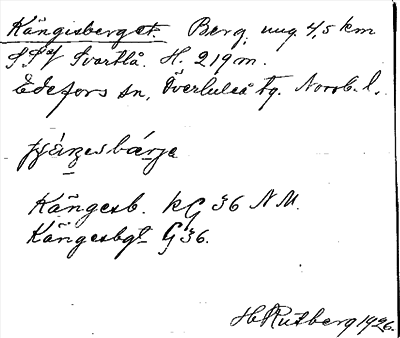 Kängisberget. Berg, ung 4,5 km
SSV Svartlå. H. 219 m.
Edefors sn, Överluleå tg. Norrb. l.
Kängesb. kG 36 NM.
Kängesbgt G 36.
H Rutberg 1926.